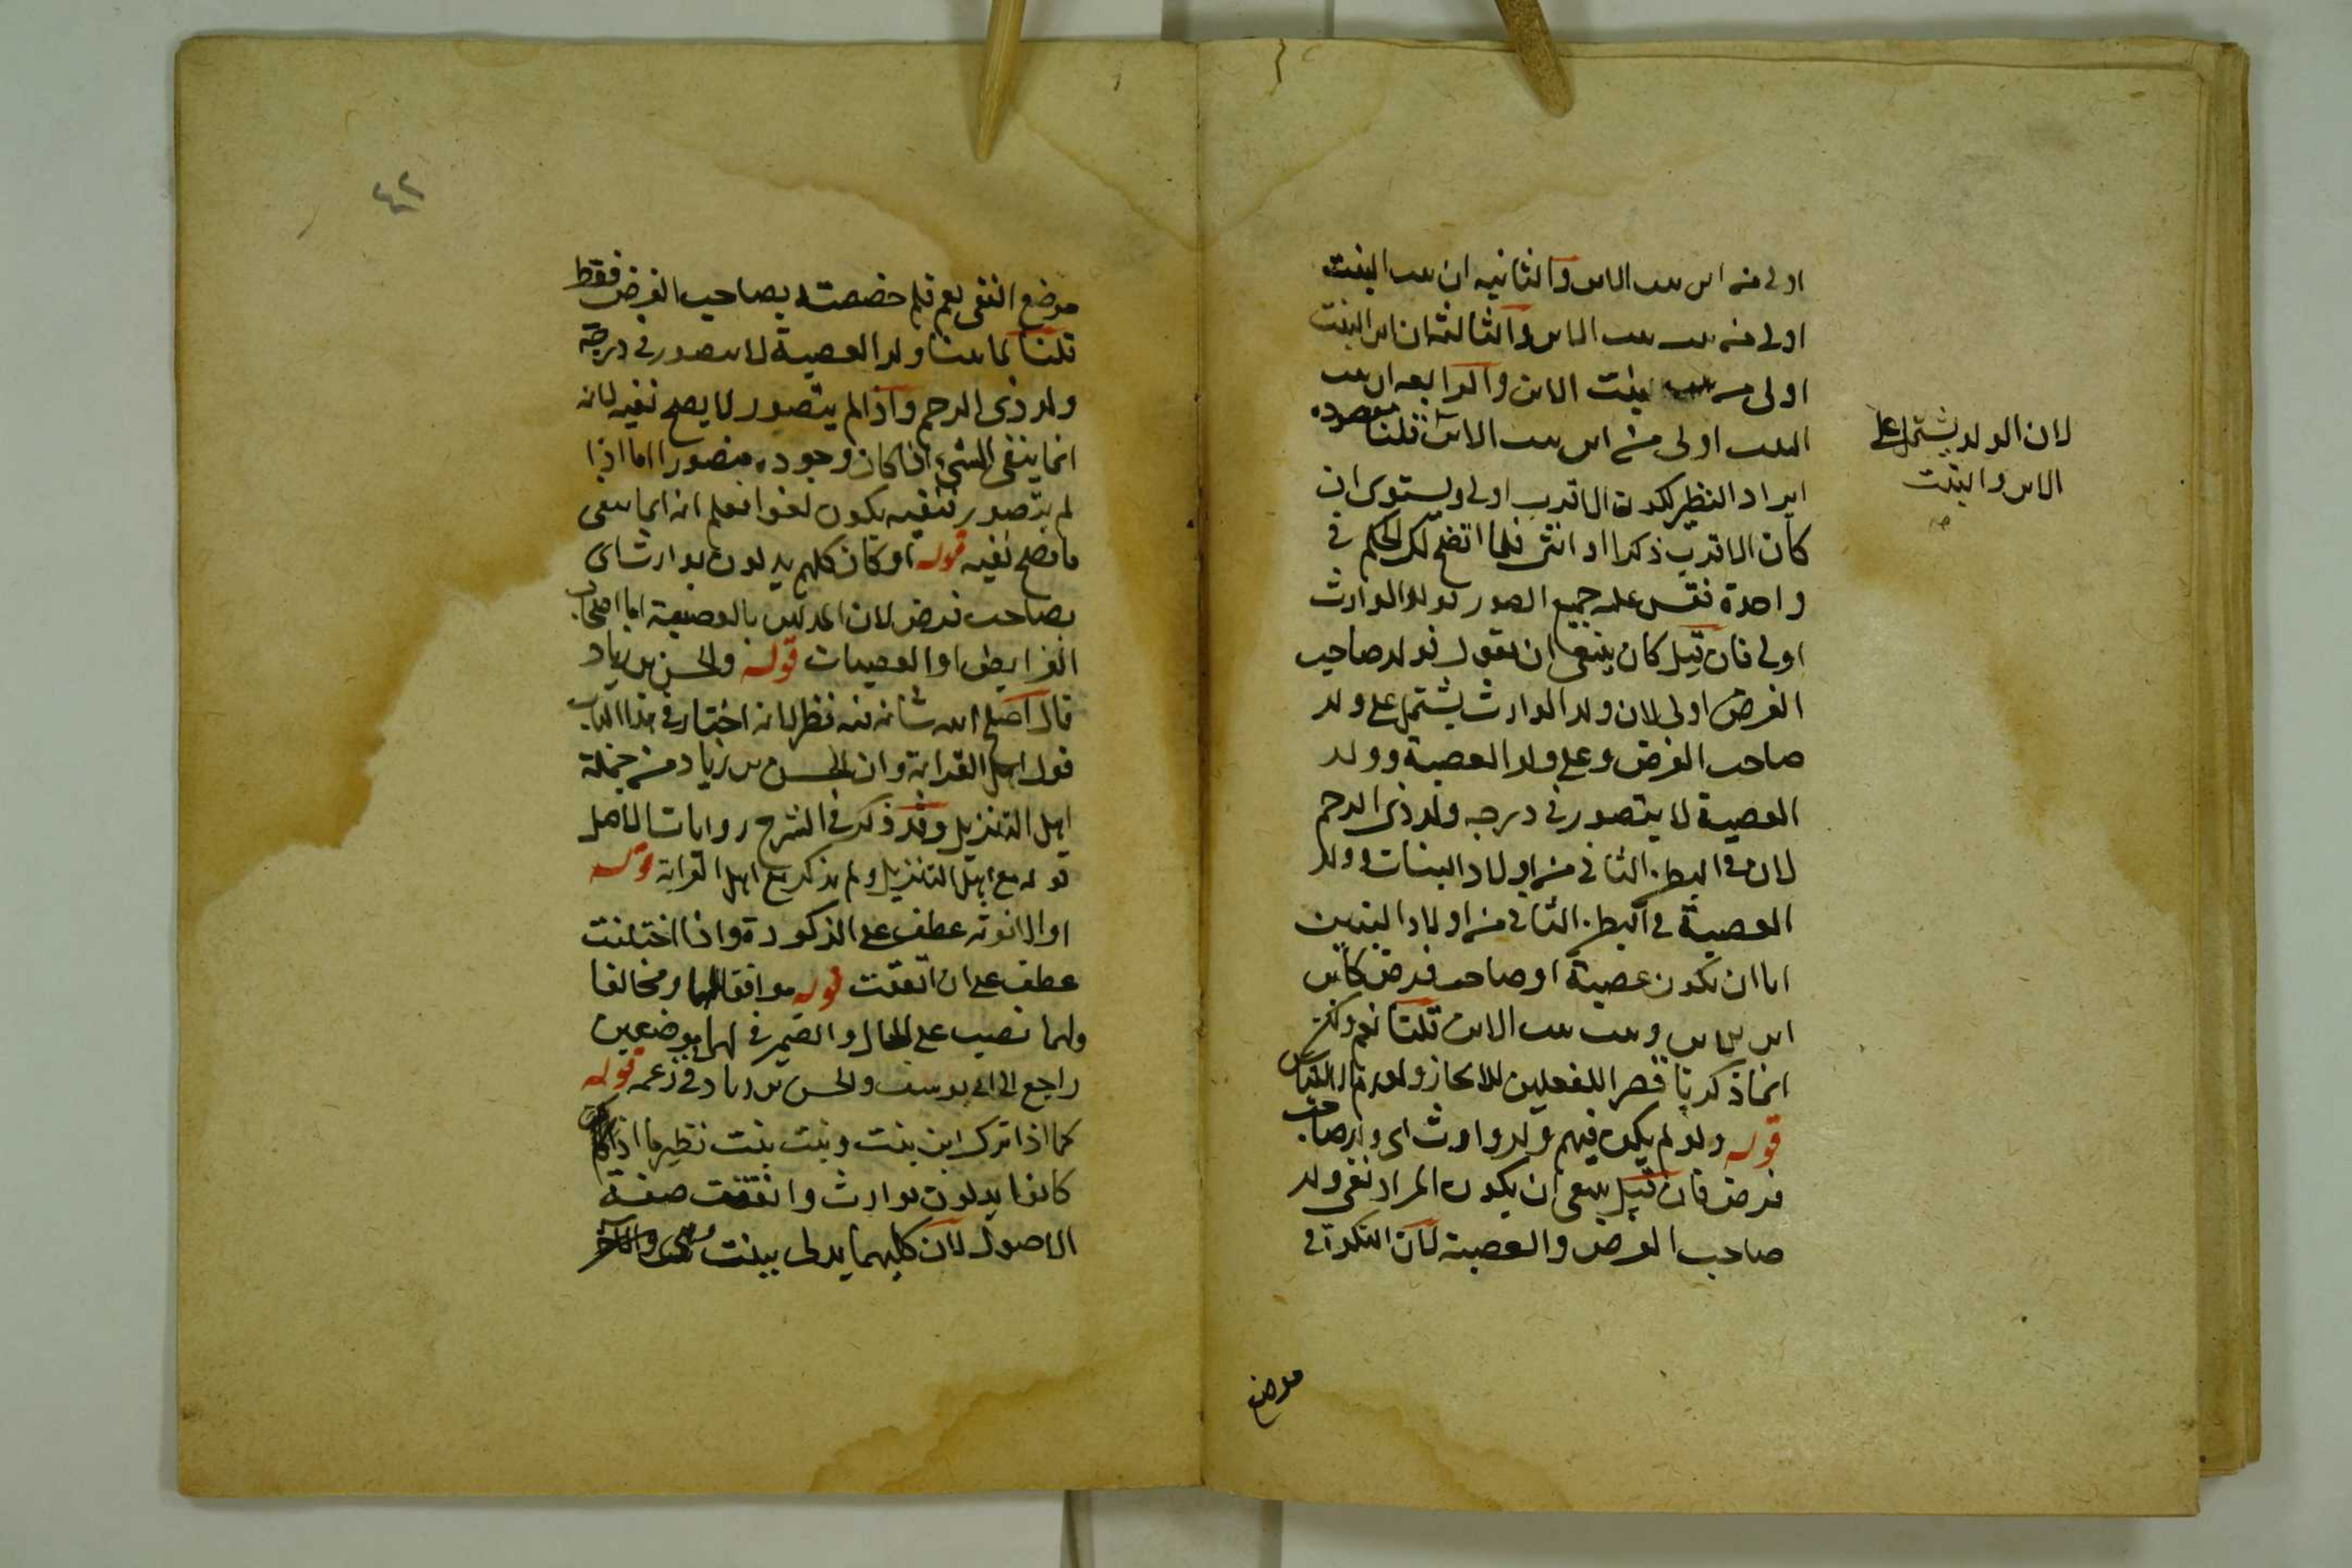 اولى من ابن بنت الابن والثانيه ان بنت البنت
اولى من بنت بنت الابن والثالثة ان ابن البنت
اولى من بنت الابن والرابعه ان بنت
البنت اولى من ابن بنت الابن قلنا مقصوده
ايراد النظير لكون الاقرب اولى ويستوى ان
كان الاقرب ذكرا او انثى فلما اتضح لك الحكم في
واحدة فقس عليه جميع الصور قوله الوارث
اولى فان قيل كان ينبغي ان يقول فولد صاحب
الفرض اولى لان ولد الوارث يشتمل على ولد
صاحب الفرض وعلى ولد العصبة وولد
العصبة لا يتصور في درجه ولد ذى الرحم
لان في البطن الثاني من اولاد البنات وولد
العصبة في البطن الثاني من اولاد البنين
اما ان يكون عصبة او صاحب فرض كابن
ابن ابن وبنت بنت الابن قلنا نعم ولكن
انما ذكر
قوله ولو لم يكن فيهم ولد وارث اى ولد صاحب
فرض فان قيل ينبغي ان يكون المراد نفى ولد
صاحب الفرض والعصبة لان النكرة في
موضع
لان الولد يشتمل على
الابن والبنت
صح
٤٢
موضع النفى يعم فلم خصصته بصاحب الفرض فقط
قلنا لما بينا ولد العصبة لا يتصور في درجة
ولد ذى الرحم واذا لم يتصور لا يصح نفيه لانه
انما ينفى الشىء اذا كان وجوده متصورا اما اذا
لم يتصور فنفيه يكون لغوا فعلم انه انما ينفى
ما يصح نفيه قوله او كان كلهم يدلون بوارث اى
بصاحب فرض لان المدلين بالعصبة اما اصحاب
الفرايض او العصبات قوله والحسن بن زياد
قال اصلح الله شانه فيه نظر لانه اختار في هذا الباب
قول اهل القرابة وان الحسن بن زياد من جملة
اهل التنزيل وقد ذكر في الشرح روايات الاصل
قوله مع اهل التنزيل ولم يذكر مع اهل القرابة قوله
او الانوثة عطف على الذكورة واذا اختلفت
عطف على ان اتفقت قوله موافقا لهما ومخالفا
ولهما نصب على الحال والضمير في لهما في موضعين
راجع الى ابى يوسف والحسن بن زياد في زعمه قوله
كما اذا ترك ابن بنت وبنت بنت نظير ما اذا لم يكن
كانوا يدلون بوارث واتفقت صفة
الاصول لان كليهما يدلى ببنت